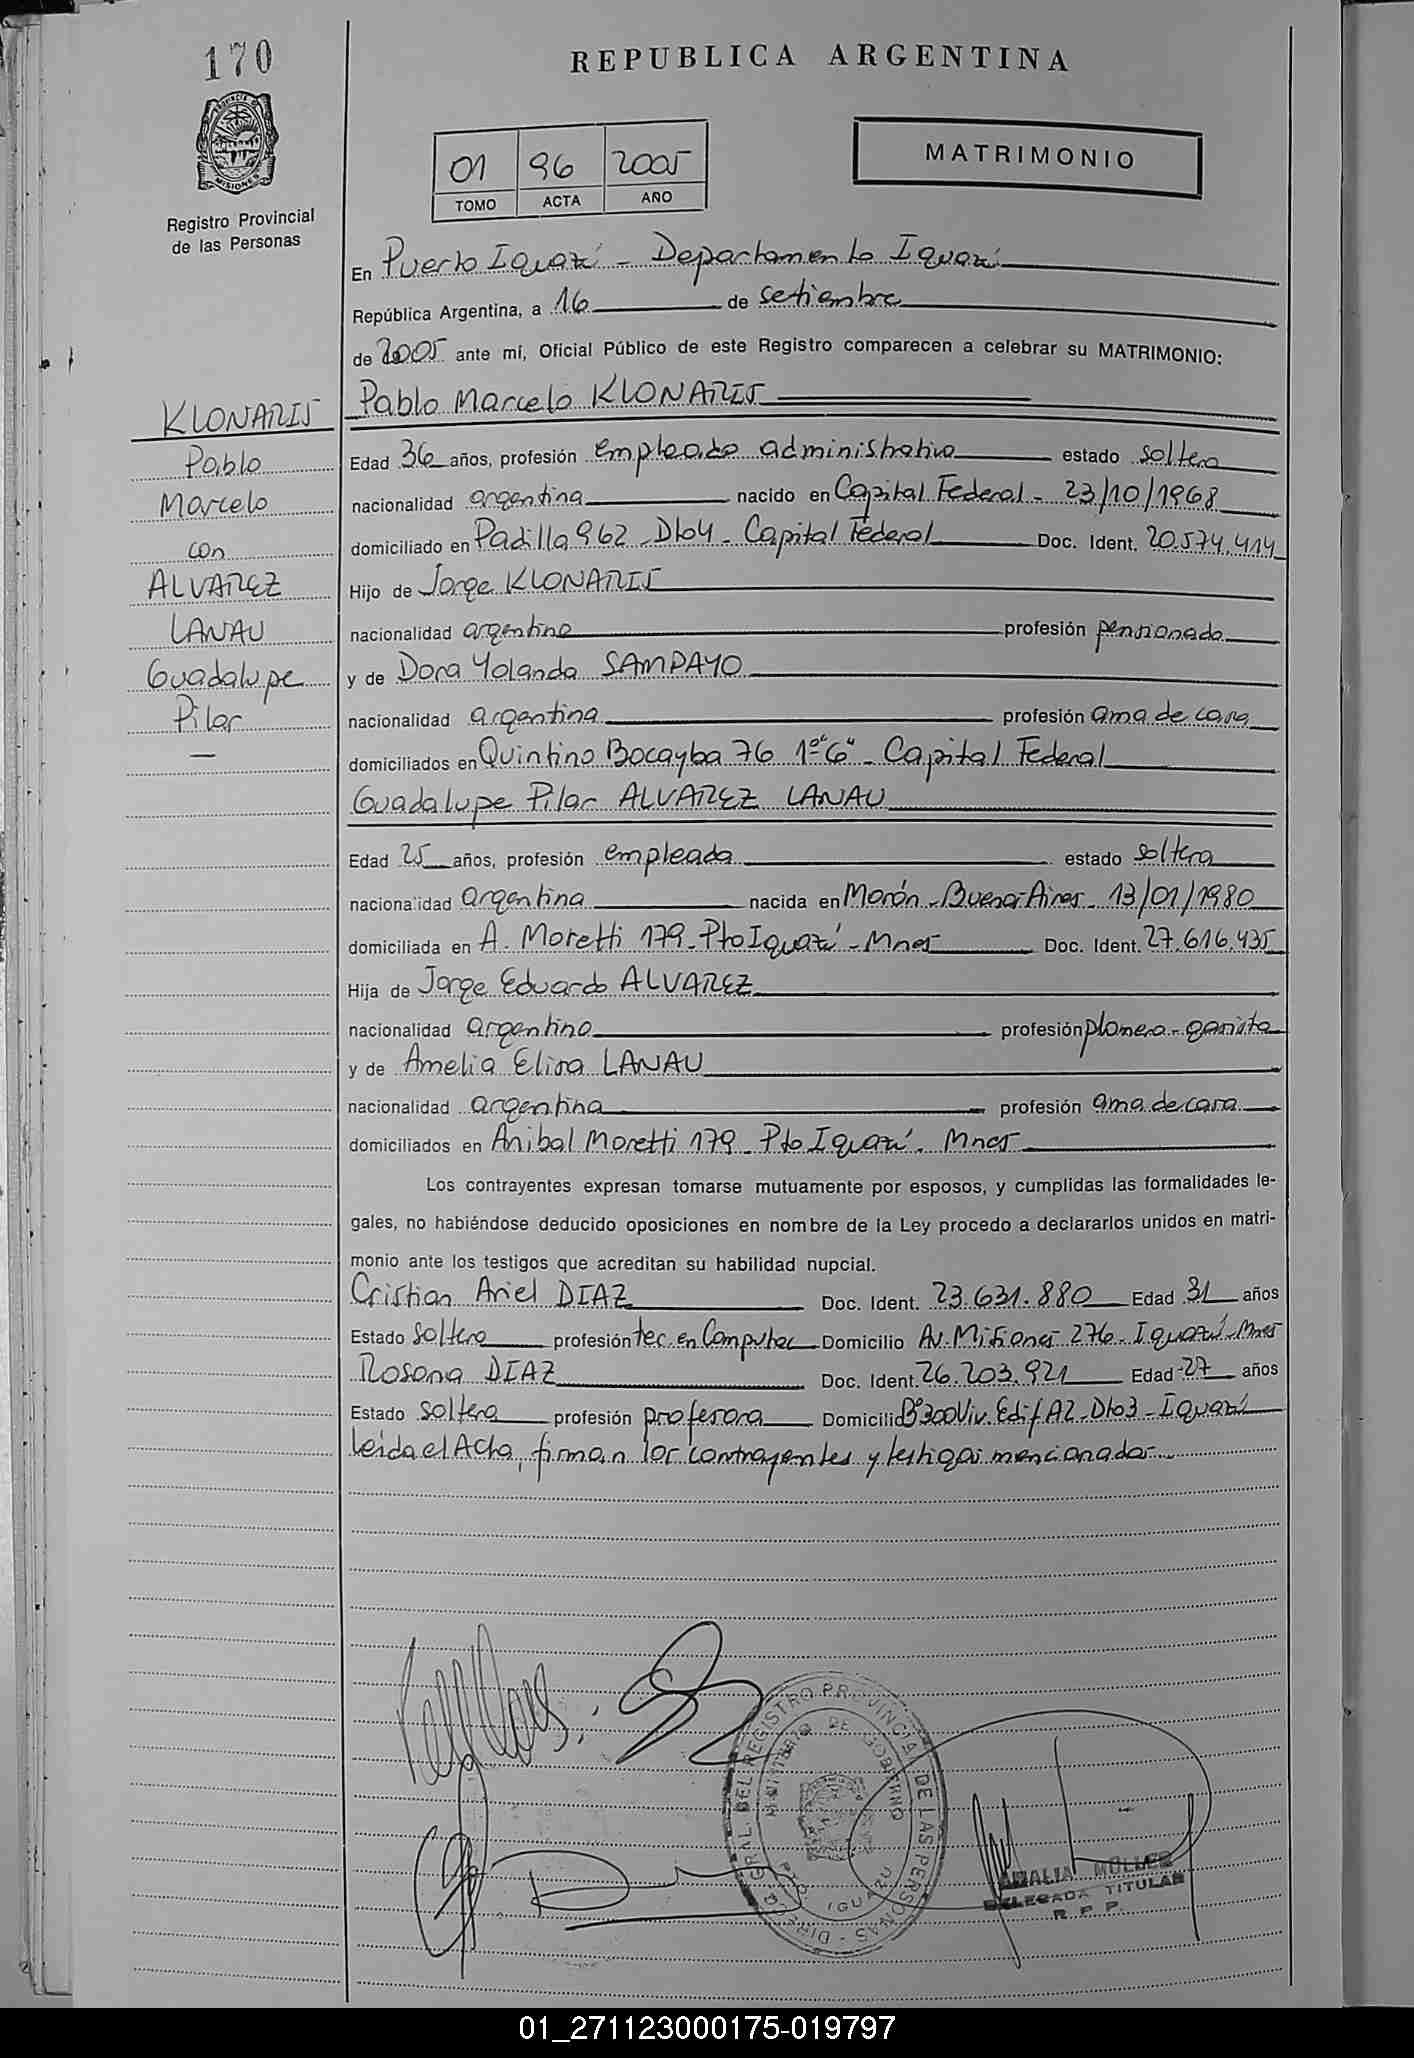 170
REPUBLICA ARGENTINA
PROVINCIA DE
MISIONES
Registro Provincial
de las Personas
01 96 2005
TOMO ACTA AÑO
MATRIMONIO
En Puerto Iguazú - Departamento Iguazú
República Argentina, a 16 de setiembre
de 2005 ante mí, Oficial Público de este Registro comparecen a celebrar su MATRIMONIO:
KLONARIS
Pablo
Marcelo
con
ALVAREZ
LANAU
Guadalupe
Pilar
—
Pablo Marcelo KLONARIS
Edad 36 años, profesión empleado administrativo estado soltero
nacionalidad argentina nacido en Capital Federal - 23/10/1968
domiciliado en Padilla 962 - Dto 4 - Capital Federal Doc. Ident. 20.574.414
Hijo de Jorge KLONARIS
nacionalidad argentino profesión pensionado
y de Dora Yolanda SAMPAYO
nacionalidad argentina profesión ama de casa
domiciliados en Quintino Bocayba 76 1º "G" - Capital Federal
Guadalupe Pilar ALVAREZ LANAU
Edad 25 años, profesión empleada estado soltera
nacionalidad argentina nacida en Morón - Buenos Aires - 13/01/1980
domiciliada en A. Moretti 179 - Pto Iguazú - Mnes Doc. Ident. 27.616.435
Hija de Jorge Eduardo ALVAREZ
nacionalidad argentino profesión plomero - gasista
y de Amelia Elisa LANAU
nacionalidad argentina profesión ama de casa
domiciliados en Anibal Moretti 179 - Pto Iguazú - Mnes
Los contrayentes expresan tomarse mutuamente por esposos, y cumplidas las formalidades le-
gales, no habiéndose deducido oposiciones en nombre de la Ley procedo a declararlos unidos en matri-
monio ante los testigos que acreditan su habilidad nupcial.
Cristian Ariel DIAZ Doc. Ident. 23.631.880 Edad 31 años
Estado soltero profesión tec. en Computac Domicilio Av. Misiones 276 - Iguazú - Mnes
Rosana DIAZ Doc. Ident. 26.203.921 Edad 27 años
Estado soltera profesión profesora Domicilio Bº 300 Viv. Edif A2 - Dto 3 - Iguazú
Leída el Acta, firman los contrayentes y testigos mencionados
DIRECC. GRAL. DEL REGISTRO PROVINCIAL DE LAS PERSONAS
MINISTERIO DE GOBIERNO
PTO. IGUAZU
AMALIA MULLER
DELEGADA TITULAR
R. P. P.
01_271123000175-019797